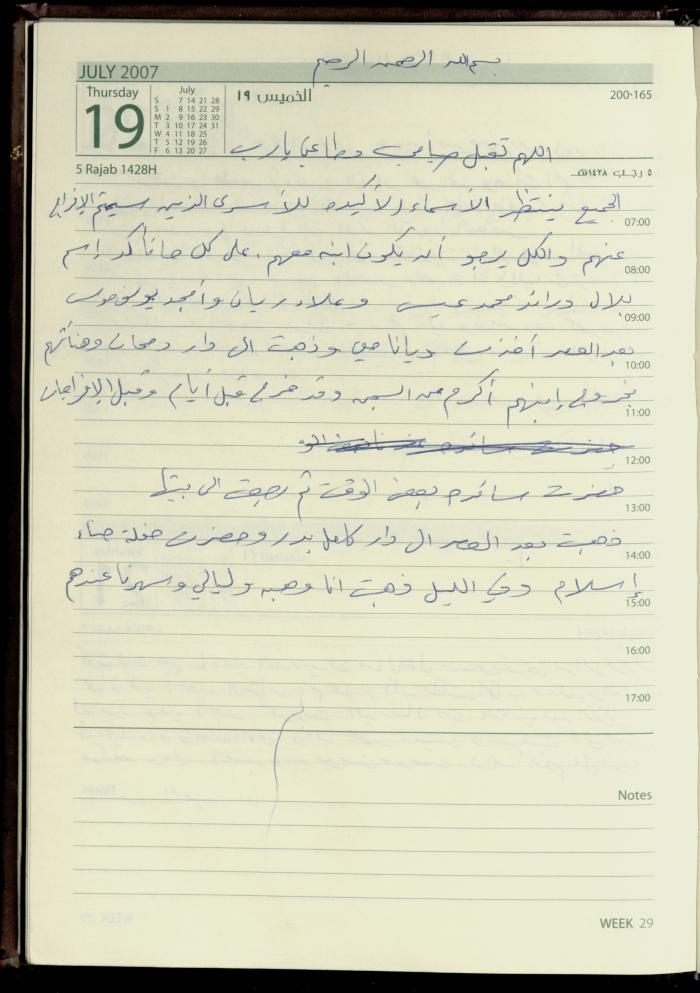 بسم الله الرحمن الرحيم
JULY 2007
Thursday
19
July
S 7 14 21 28
S 1 8 15 22 29
M 2 9 16 23 30
T 3 10 17 24 31
W 4 11 18 25
T 5 12 19 26
F 6 13 20 27
الخميس ١٩
200-165
اللهم تقبل صيامي وطاعتي يارب
5 Rajab 1428H
٥ رجب ١٤٢٨هـ
الجميع ينتظر الأسماء الأكيده للأسرى الذين سيتم الإفراج
07:00
عنهم والكل يرجو أن يكون ابنه معهم، على كل حال تأكد إسم
08:00
بلال ورائد محمد عيسى وعلاء ريان وأمجد
09:00
بعد العصر أخذت ديانا مي وذهبت الى دار وهنأتهم
10:00
بخروج إبنهم أكرم من السجن وقد خرج قبل أيام وقبل الإفراجات
11:00
12:00
حضرت سائده بعض الوقت ثم رجعت الى بيتها
13:00
ذهبت بعد العصر الى دار كامل بدر وحضرت حفلة حناء
14:00
إسلام وفي الليل ذهبت انا وهبه وليالي وسهرنا عندهم
15:00
16:00
17:00
Notes
WEEK 29